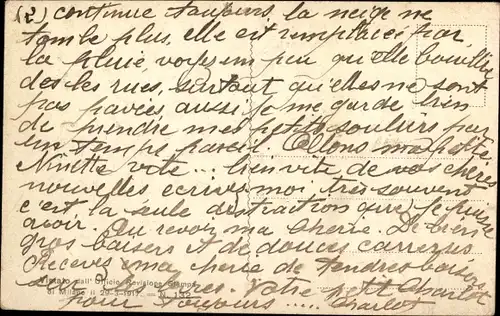 (2) continue toujours, la neige ne
tombe plus, elle est remplacée par
la pluie, voyez un peu qu'elle
des les rues, surtout qu'elles ne sont
pas pavées aussi je me garde bien
de prendre mes petits souliers par
un temps pareil. Allons ma petite
Ninette vite... bien vite de vos chères
nouvelles écrivez moi très souvent
c'est la seule distraction que je puisse
avoir. Au revoir ma chérie. De bien
gros baisers et de douces caresses
Recevez ma chérie de tendres baisers
sur vos Votre petit Charlot
pour toujours ..... Charlot
Visato dall'Ufficio Revisione Stampa
di Milano il 29-3-1917. — N. 132